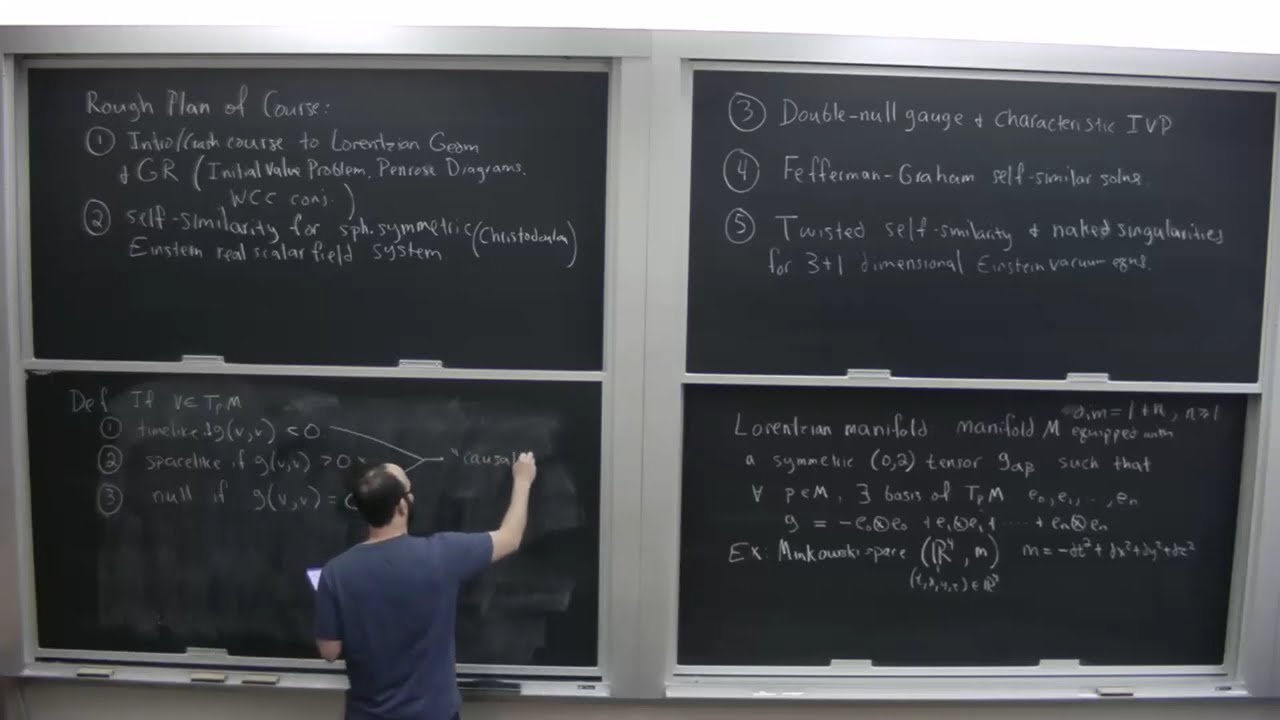 Rough Plan of Course:
① Intro/Crash course to Lorentzian Geom
& GR (Initial Value Problem, Penrose Diagrams,
WCC conj.)
② self-similarity for sph. symmetric (Christodoulou)
Einstein real scalar field system
③ Double-null gauge & characteristic IVP
④ Fefferman-Graham self-similar solns.
⑤ Twisted self-similarity & naked singularities
for 3+1 dimensional Einstein vacuum eqns.
Def If v∈TₚM
① timelike if g(v,v) < 0
② spacelike if g(v,v) > 0
③ null if g(v,v) =
"causal
Lorentzian manifold manifold M dim = 1+n, n≥1
equipped with
a symmetric (0,2) tensor gαβ such that
∀ p∈M, ∃ basis of TₚM e₀,e₁,..,eₙ
g = -e₀⊗e₀ + e₁⊗e₁ + ···· + eₙ⊗eₙ
Ex: Minkowski space (ℝ⁴, m) m = -dt²+dx²+dy²+dz²